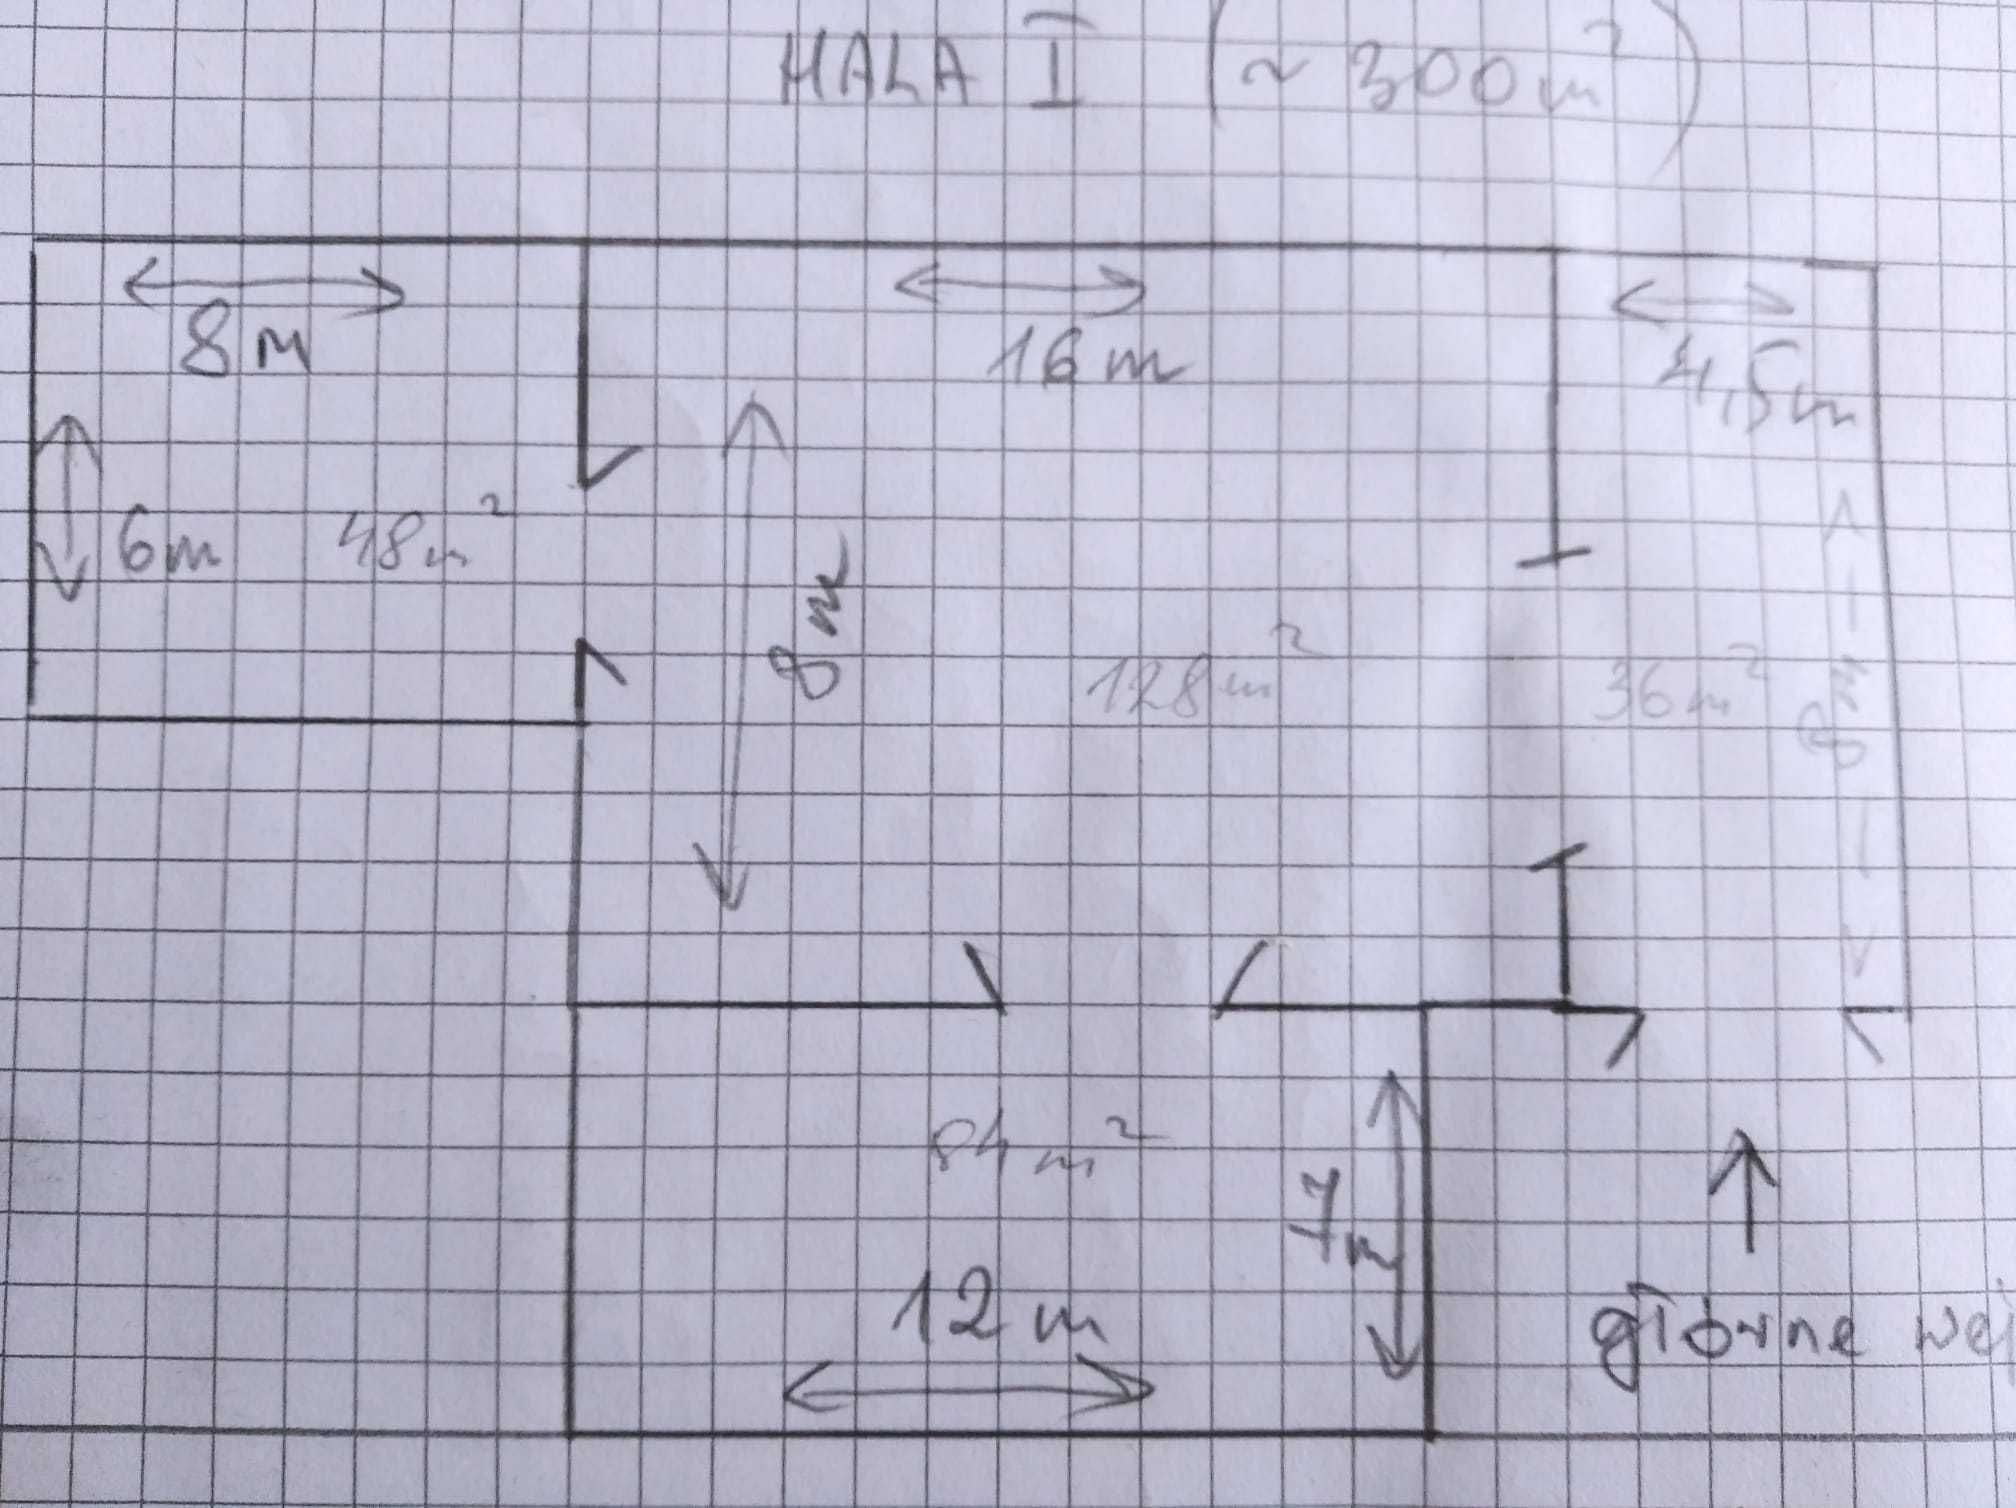 HALA I (~300m²)
8m
16m
4,5m
6m
48m²
8m
128m²
36m²
8m
84m²
7m
12m
główne